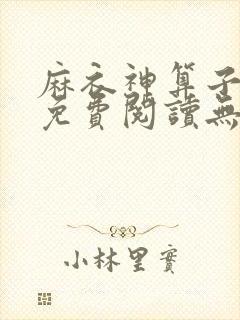 麻衣神算子
免費閱讀無
小林里實